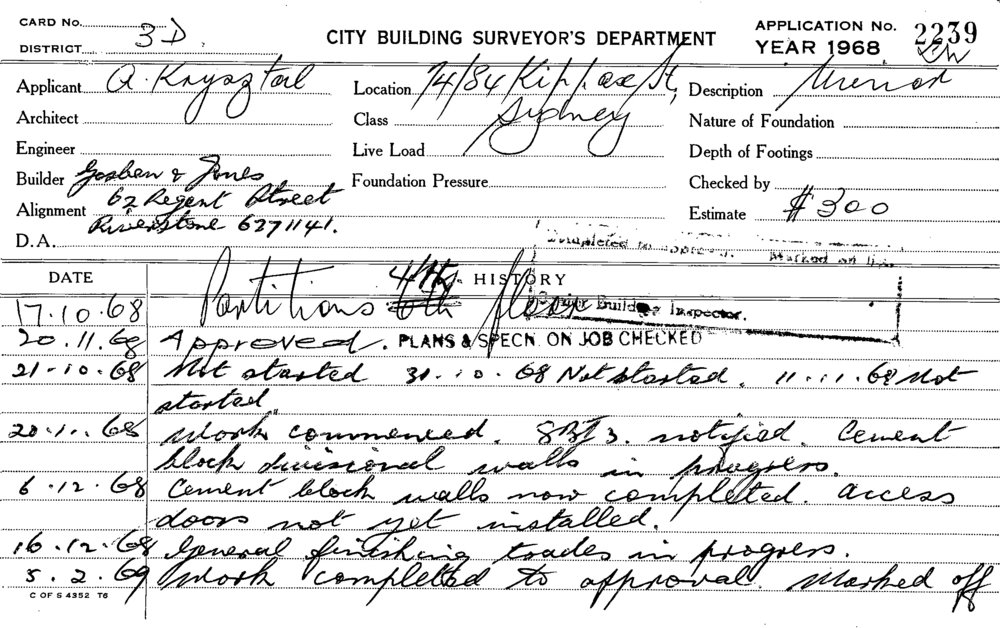 CARD No.
DISTRICT 3D.
CITY BUILDING SURVEYOR'S DEPARTMENT
APPLICATION No. 2239
YEAR 1968
Applicant A. Krysztal
Location 74/84 Kippax St,
Description Minor
Architect
Class Sydney
Nature of Foundation
Engineer
Live Load
Depth of Footings
Builder Gosben & Jones
Foundation Pressure
Checked by
Alignment 62 Regent Street
Estimate $300
Riverstone 6271141.
D.A.
Completed to approval. Marked off
DATE
HISTORY
4th
17.10.68 Partitions 6th floor
Building Inspector.
20.11.68 Approved. PLANS & SPECN. ON JOB CHECKED
21-10-68 Not started 31-10-68 Not started. 11-11-68 Not
started.
20.11.68 Work commenced. SBI 3. notified. Cement
block divisional walls in progress.
6.12.68 Cement block walls now completed. Access
doors not yet installed.
16.12.68 General finishing trades in progress.
5.2.69 Work completed to approval. Marked off
C OF S 4352 T6